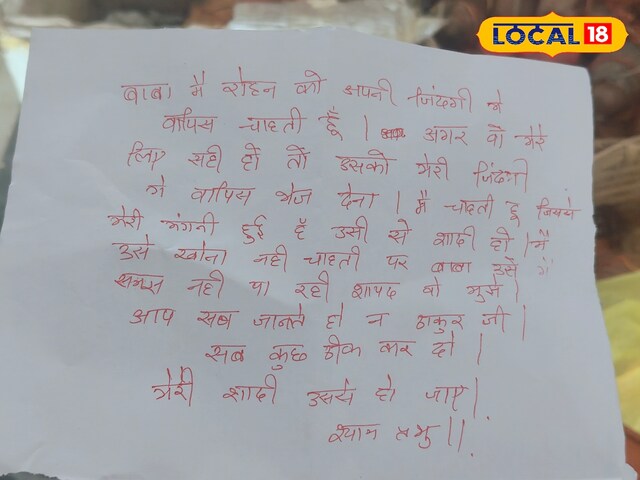 LOCAL 18
बाबा मै रोहन को अपनी जिंदगी मे
वापिस चाहती हूँ । अगर वो मेरे
लिए सही हो तो उसको मेरी जिंदगी
मे वापिस भेज देना । मै चाहती हू जिससे
मेरी मंगनी हुई है उसी से शादी हो । मै
उसे खोना नही चाहती पर बाबा उसे मै
समझ नही पा रही शायद वो मुझे ।
आप सब जानते हो न ठाकुर जी ।
सब कुछ ठीक कर दो ।
मेरी शादी उससे हो जाए ।
श्याम ॥